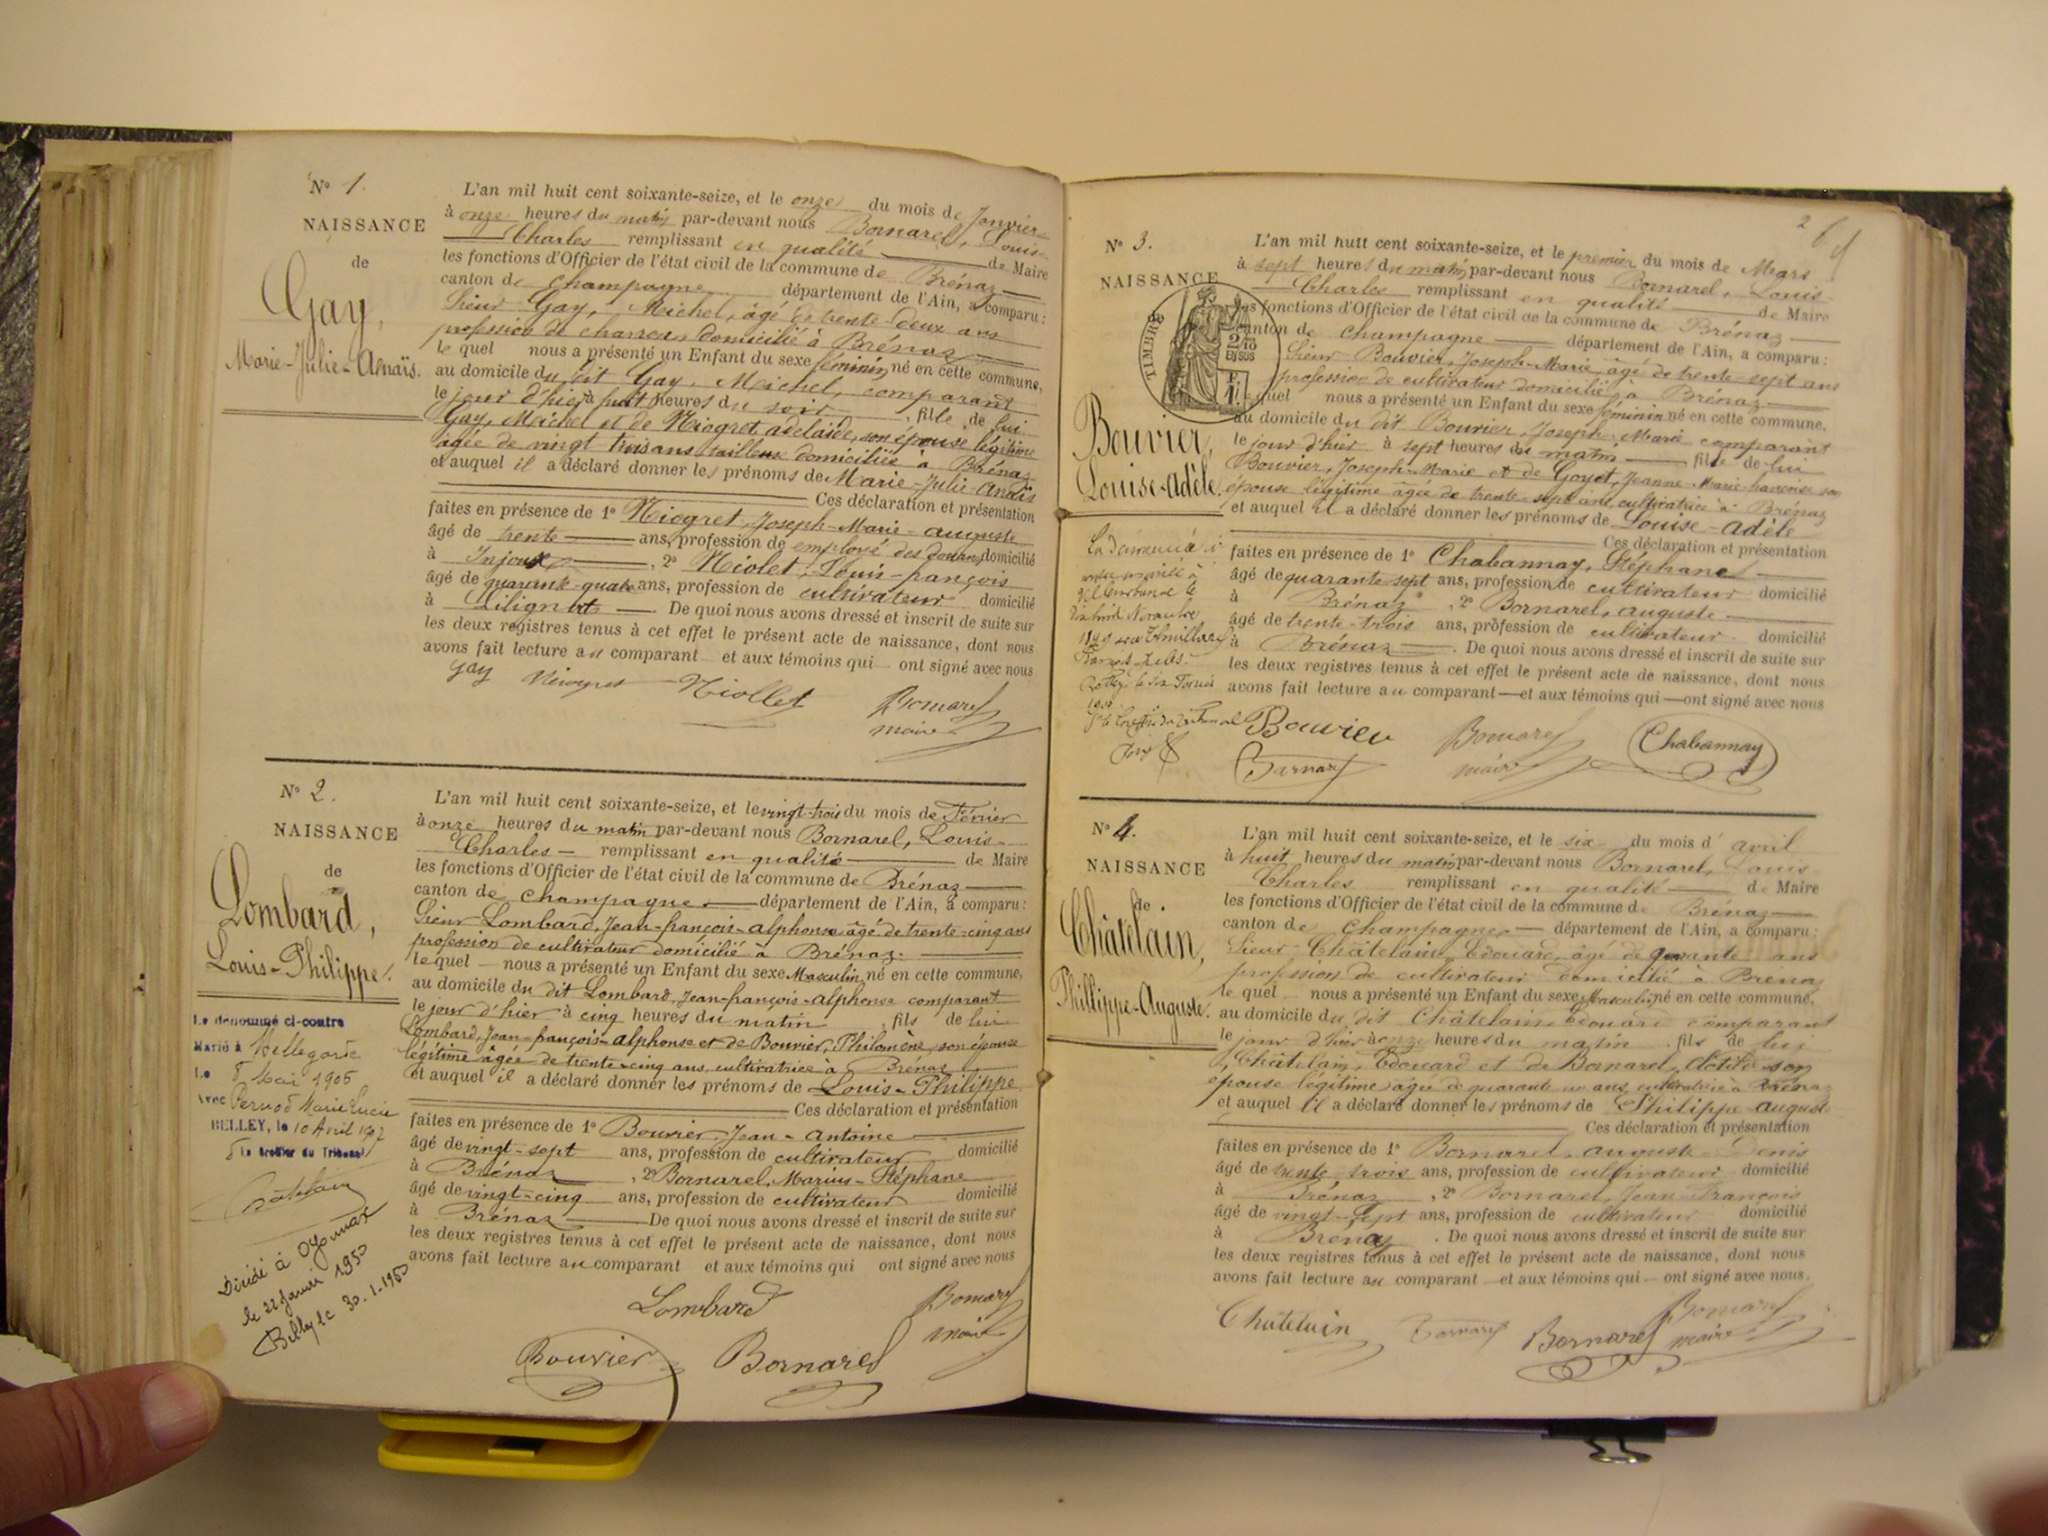 N° 1.
NAISSANCE
de
Gay,
Marie-Julie-Anaïs.
L'an mil huit cent soixante-seize, et le onze du mois de Janvier
à onze heures du matin par-devant nous Bornarel, Louis-
Charles remplissant en qualité de Maire
les fonctions d'Officier de l'état civil de la commune de Brénaz
canton de Champagne département de l'Ain, a comparu:
Sieur Gay, Michel, âgé de trente-deux ans
profession de charron domicilié à Brénaz
le quel nous a présenté un Enfant du sexe féminin né en cette commune,
au domicile du dit Gay, Michel, comparant
le jour d'hier à huit heures du soir, fille de lui
Gay, Michel et de Niogret adelaïde, son épouse légitime
âgée de vingt trois ans tailleuse domiciliée à Brénaz
et auquel il a déclaré donner les prénoms de Marie-Julie-Anaïs
Ces déclaration et présentation
faites en présence de 1° Niogret, Joseph-Marie-auguste
âgé de trente ans, profession de employé des douanes domicilié
à Injoux, 2° Niolet, Louis-françois
âgé de quarante-quatre ans, profession de cultivateur domicilié
à Lilignod. De quoi nous avons dressé et inscrit de suite sur
les deux registres tenus à cet effet le présent acte de naissance, dont nous
avons fait lecture au comparant et aux témoins qui ont signé avec nous
Gay Niogret Niollet Bornarel
maire
N° 2.
NAISSANCE
de
Lombard,
Louis-Philippe.
Le dénommé ci-contre
Marié à Bellegarde
Le 8 Mai 1905
Avec Pernod Marie Lucie
BELLEY, le 10 Avril 1907
Le Greffier du Tribunal
Décédé à Oyonnax
le 22 Janvier 1950
Belley le 30.1.1950
L'an mil huit cent soixante-seize, et le vingt-trois du mois de Février
à onze heures du matin par-devant nous Bornarel, Louis-
Charles remplissant en qualité de Maire
les fonctions d'Officier de l'état civil de la commune de Brénaz
canton de Champagne département de l'Ain, a comparu:
Sieur Lombard, Jean-françois-alphonse âgé de trente-cinq ans
profession de cultivateur domicilié à Brénaz
le quel nous a présenté un Enfant du sexe Masculin né en cette commune,
au domicile du dit Lombard, Jean-françois-alphonse comparant
le jour d'hier à cinq heures du matin, fils de lui
Lombard, Jean-françois-alphonse et de Bouvier, Philomène, son épouse
légitime âgée de trente-cinq ans, cultivatrice à Brénaz
et auquel il a déclaré donner les prénoms de Louis-Philippe
Ces déclaration et présentation
faites en présence de 1° Bouvier, Jean-Antoine
âgé de vingt-sept ans, profession de cultivateur domicilié
à Brénaz, 2° Bornarel, Marius-Stéphane
âgé de vingt-cinq ans, profession de cultivateur domicilié
à Brénaz De quoi nous avons dressé et inscrit de suite sur
les deux registres tenus à cet effet le présent acte de naissance, dont nous
avons fait lecture au comparant et aux témoins qui ont signé avec nous
Lombard Bornarel
maire
Bouvier Bornarel
N° 3.
NAISSANCE
TIMBRE
2/10
EN SUS
Bouvier,
Louise-adèle.
L'an mil huit cent soixante-seize, et le premier du mois de Mars
à sept heures du matin par-devant nous Bornarel, Louis-
Charles remplissant en qualité de Maire
les fonctions d'Officier de l'état civil de la commune de Brénaz
canton de Champagne département de l'Ain, a comparu:
Sieur Bouvier, Joseph-Marie, âgé de trente-sept ans
profession de cultivateur domicilié à Brénaz
le quel nous a présenté un Enfant du sexe féminin né en cette commune,
au domicile du dit Bouvier, Joseph-Marie comparant
le jour d'hier à sept heures du matin fille de lui
Bouvier, Joseph-Marie et de Goyet, Jeanne-Marie-françoise son
épouse légitime âgée de trente-sept ans, cultivatrice à Brénaz
et auquel il a déclaré donner les prénoms de Louise-adèle
Ces déclaration et présentation
faites en présence de 1° Chabannay, Stéphane
âgé de quarante-sept ans, profession de cultivateur domicilié
à Brénaz, 2° Bornarel, auguste
âgé de trente-trois ans, profession de cultivateur domicilié
à Brénaz. De quoi nous avons dressé et inscrit de suite sur
les deux registres tenus à cet effet le présent acte de naissance, dont nous
avons fait lecture au comparant et aux témoins qui ont signé avec nous
Bouvier Bornarel Chabannay
maire
N° 4.
NAISSANCE
de
Châtelain,
Phillippe-Auguste.
L'an mil huit cent soixante-seize, et le six du mois d'avril
à huit heures du matin par-devant nous Bornarel, Louis-
Charles remplissant en qualité de Maire
les fonctions d'Officier de l'état civil de la commune de Brénaz
canton de Champagne département de l'Ain, a comparu:
Sieur Châtelain, Edouard, âgé de quarante ans
profession de cultivateur domicilié à Brénaz
le quel nous a présenté un Enfant du sexe Masculin né en cette commune,
au domicile du dit Châtelain Edouard comparant
le jour d'hier à onze heures du matin, fils de lui
Châtelain, Edouard et de Bornarel, Clotilde son
épouse légitime âgée de quarante un ans, cultivatrice à Brénaz
et auquel il a déclaré donner les prénoms de Philippe-auguste
Ces déclaration et présentation
faites en présence de 1° Bornarel, auguste-Denis
âgé de trente-trois ans, profession de cultivateur domicilié
à Brénaz, 2° Bornarel, Jean-François
âgé de vingt-sept ans, profession de cultivateur domicilié
à Brénaz. De quoi nous avons dressé et inscrit de suite sur
les deux registres tenus à cet effet le présent acte de naissance, dont nous
avons fait lecture au comparant et aux témoins qui ont signé avec nous.
Châtelain Bornarel Bornarel Bornarel
maire